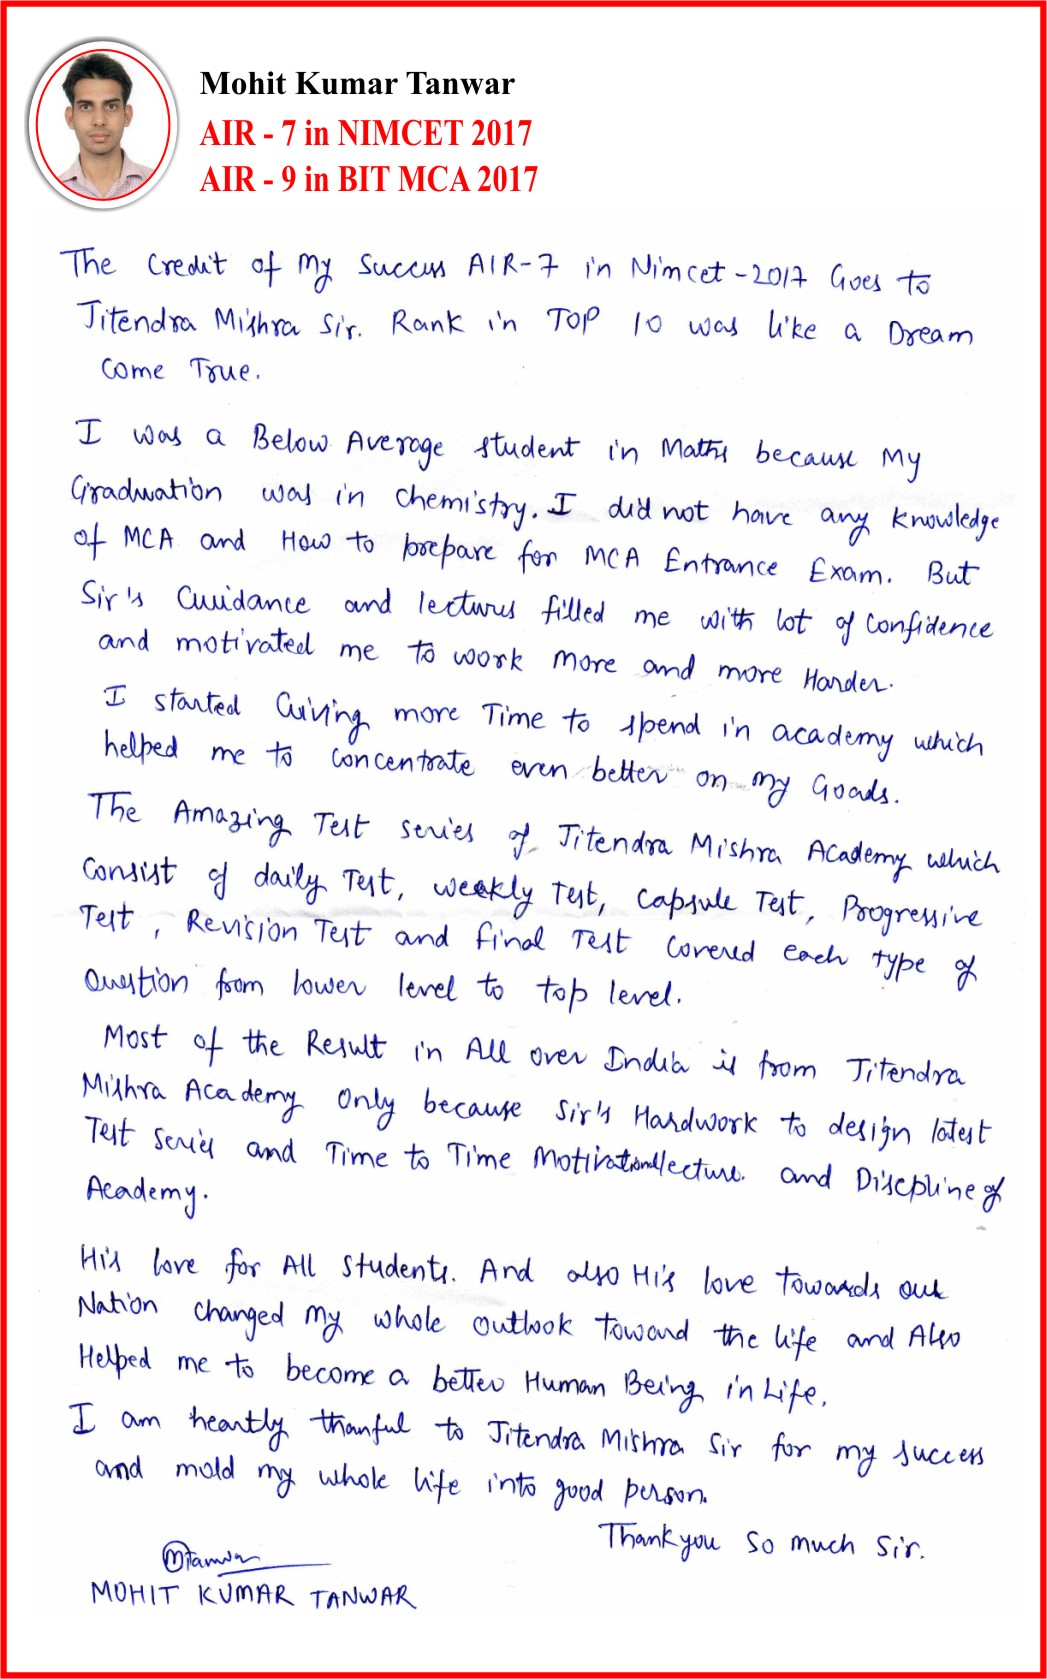 Mohit Kumar Tanwar
AIR - 7 in NIMCET 2017
AIR - 9 in BIT MCA 2017
The Credit of My Success AIR-7 in Nimcet-2017 Goes to
Jitendra Mishra Sir. Rank in TOP 10 was like a Dream
Come True.
I was a Below Average student in Maths because My
Graduation was in chemistry. I did not have any knowledge
of MCA and How to prepare for MCA Entrance Exam. But
Sir's Guidance and lectures filled me with lot of Confidence
and motivated me to work more and more Harder.
I started Giving more Time to spend in academy which
helped me to Concentrate even better on my Goads.
The Amazing Test series of Jitendra Mishra Academy which
Consist of daily Test, Weekly Test, Capsule Test, Progressive
Test, Revision Test and final Test Covered each type of
Question from lower level to top level.
Most of the Result in All over India is from Jitendra
Mishra Academy only because Sir's Hardwork to design latest
Test Series and Time to Time Motivational lecture. and Discpline of
Academy.
His love for All Students. And also His love towards our
Nation changed My whole outlook toward the life and Also
Helped me to become a better Human Being in Life.
I am heartly thanful to Jitendra Mishra Sir for my success
and mold my whole life into good person.
Thank you so much Sir.
MTanwar
MOHIT KUMAR TANWAR